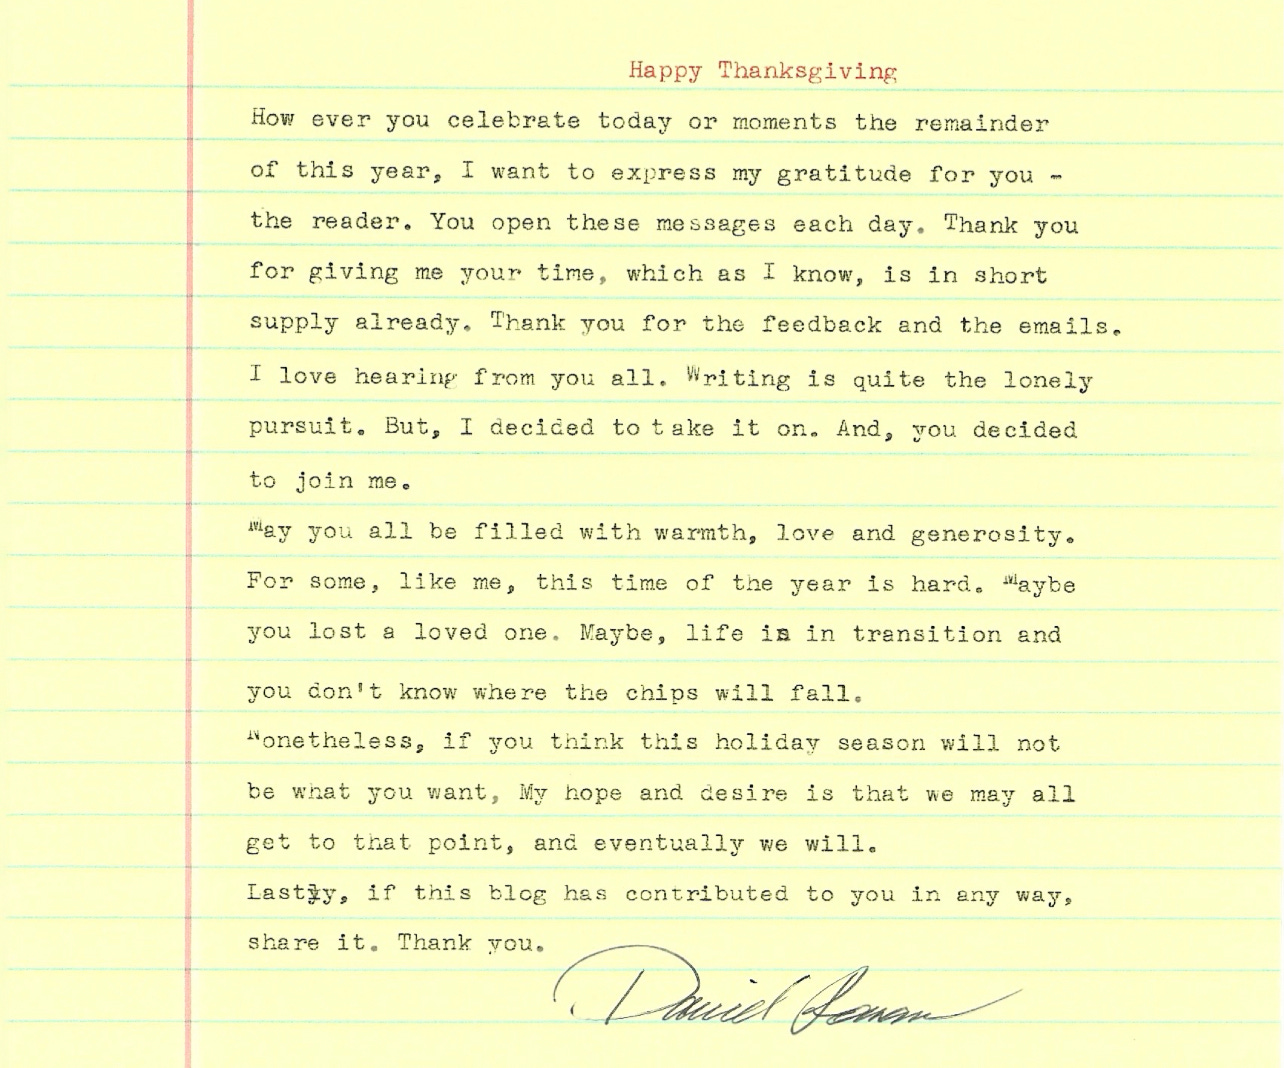 Happy Thanksgiving
How ever you celebrate today or moments the remainder
of this year, I want to express my gratitude for you -
the reader. You open these messages each day. Thank you
for giving me your time, which as I know, is in short
supply already. Thank you for the feedback and the emails.
I love hearing from you all. Writing is quite the lonely
pursuit. But, I decided to take it on. And, you decided
to join me.
May you all be filled with warmth, love and generosity.
For some, like me, this time of the year is hard. Maybe
you lost a loved one. Maybe, life is in transition and
you don't know where the chips will fall.
Nonetheless, if you think this holiday season will not
be what you want, My hope and desire is that we may all
get to that point, and eventually we will.
Lastly, if this blog has contributed to you in any way,
share it. Thank you.
Daniel